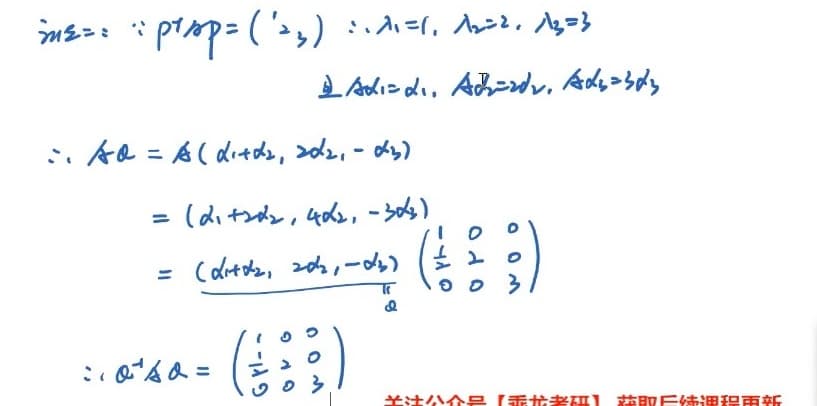 证明二: ∵ P⁻¹AP = (1 2 3) ∴ λ₁=1, λ₂=2, λ₃=3
且 Aα₁=α₁, Aα₂=2α₂, Aα₃=3α₃
∴ AQ = A(α₁+α₂, 2α₂, -α₃)
= (α₁+2α₂, 4α₂, -3α₃)
= (α₁+α₂, 2α₂, -α₃) (1 0 0
1/2 2 0
0 0 3)
Q
∴ Q⁻¹AQ = (1 0 0
1/2 2 0
0 0 3)
关注公众号【乘龙考研】，获取后续课程更新